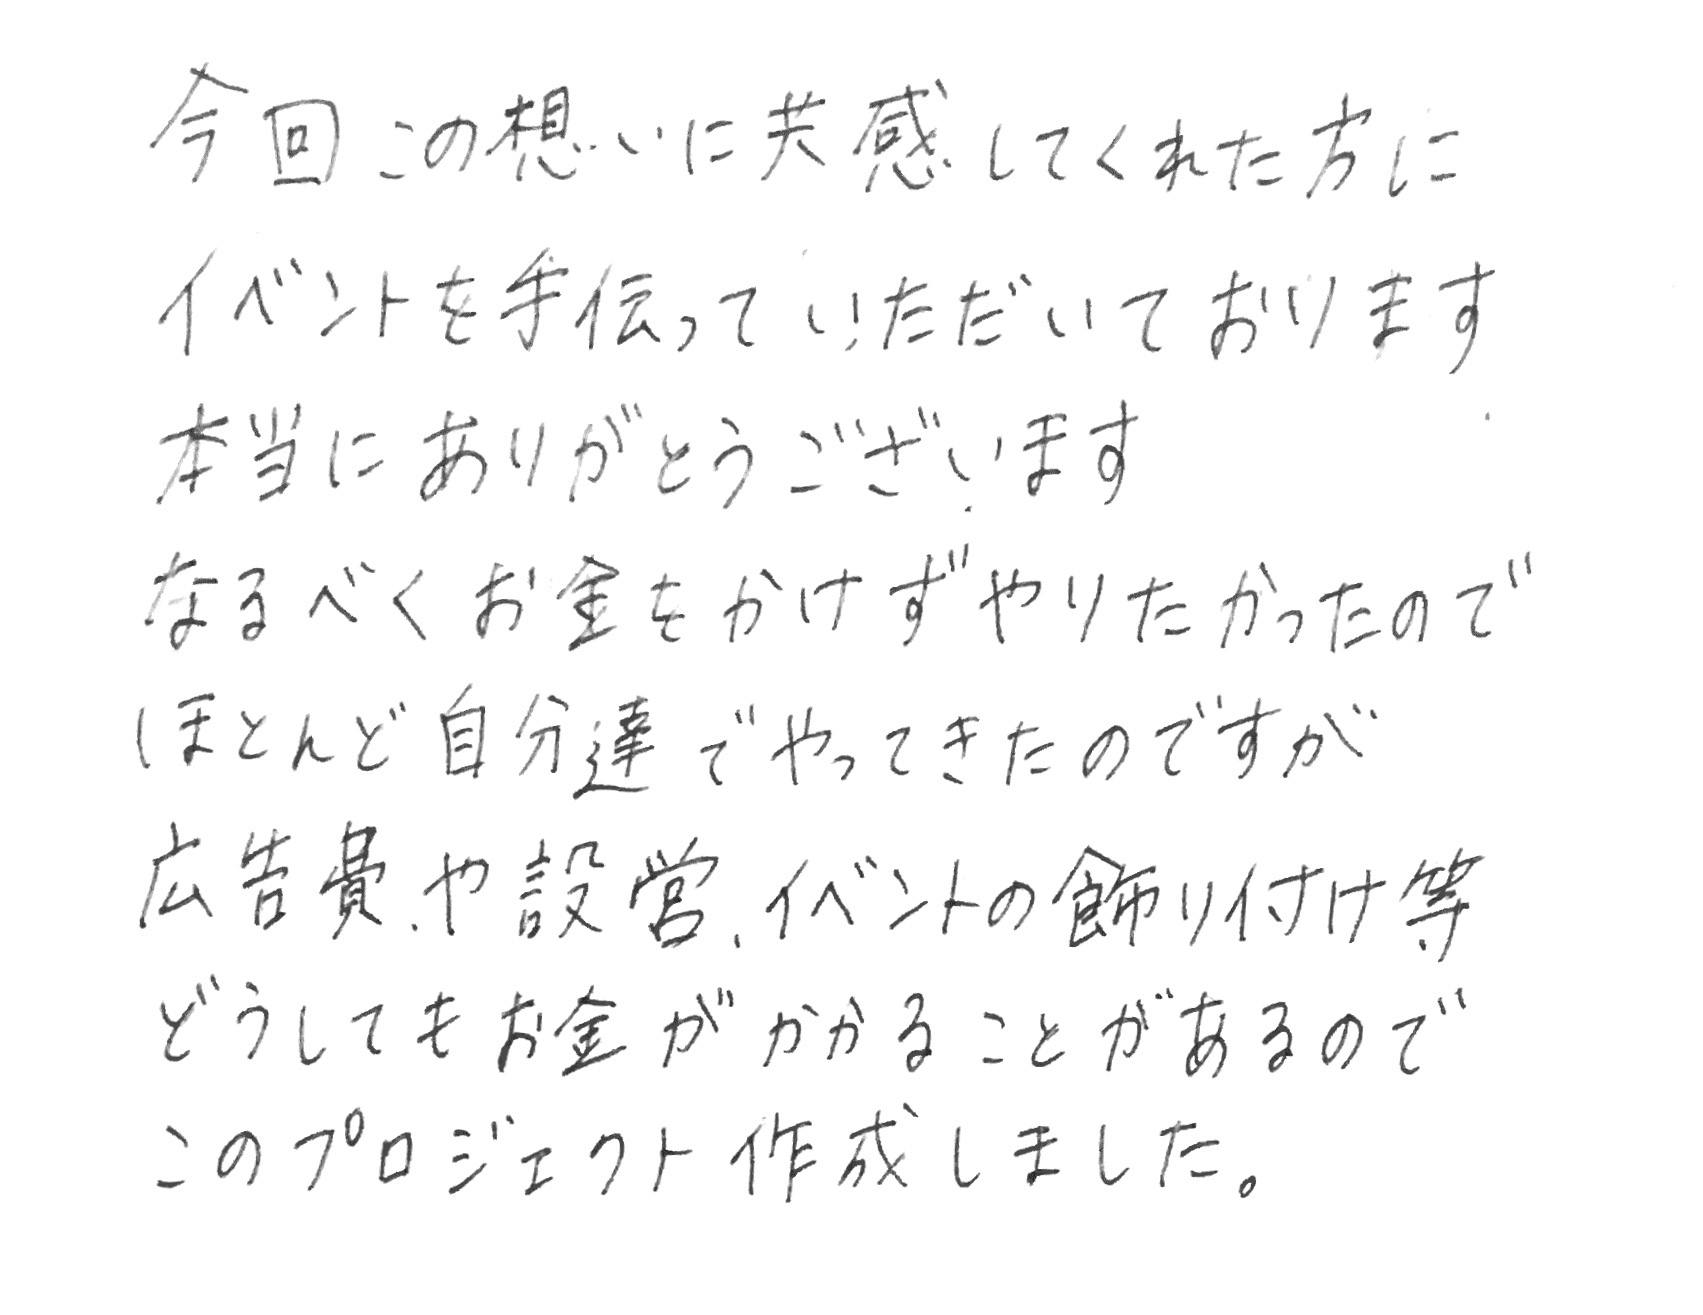 今回この想いに共感してくれた方に
イベントを手伝っていただいております
本当にありがとうございます
なるべくお金をかけずやりたかったので
ほとんど自分達でやってきたのですが
広告費、や設営、イベントの飾り付け等
どうしてもお金がかかることがあるので
このプロジェクト作成しました。